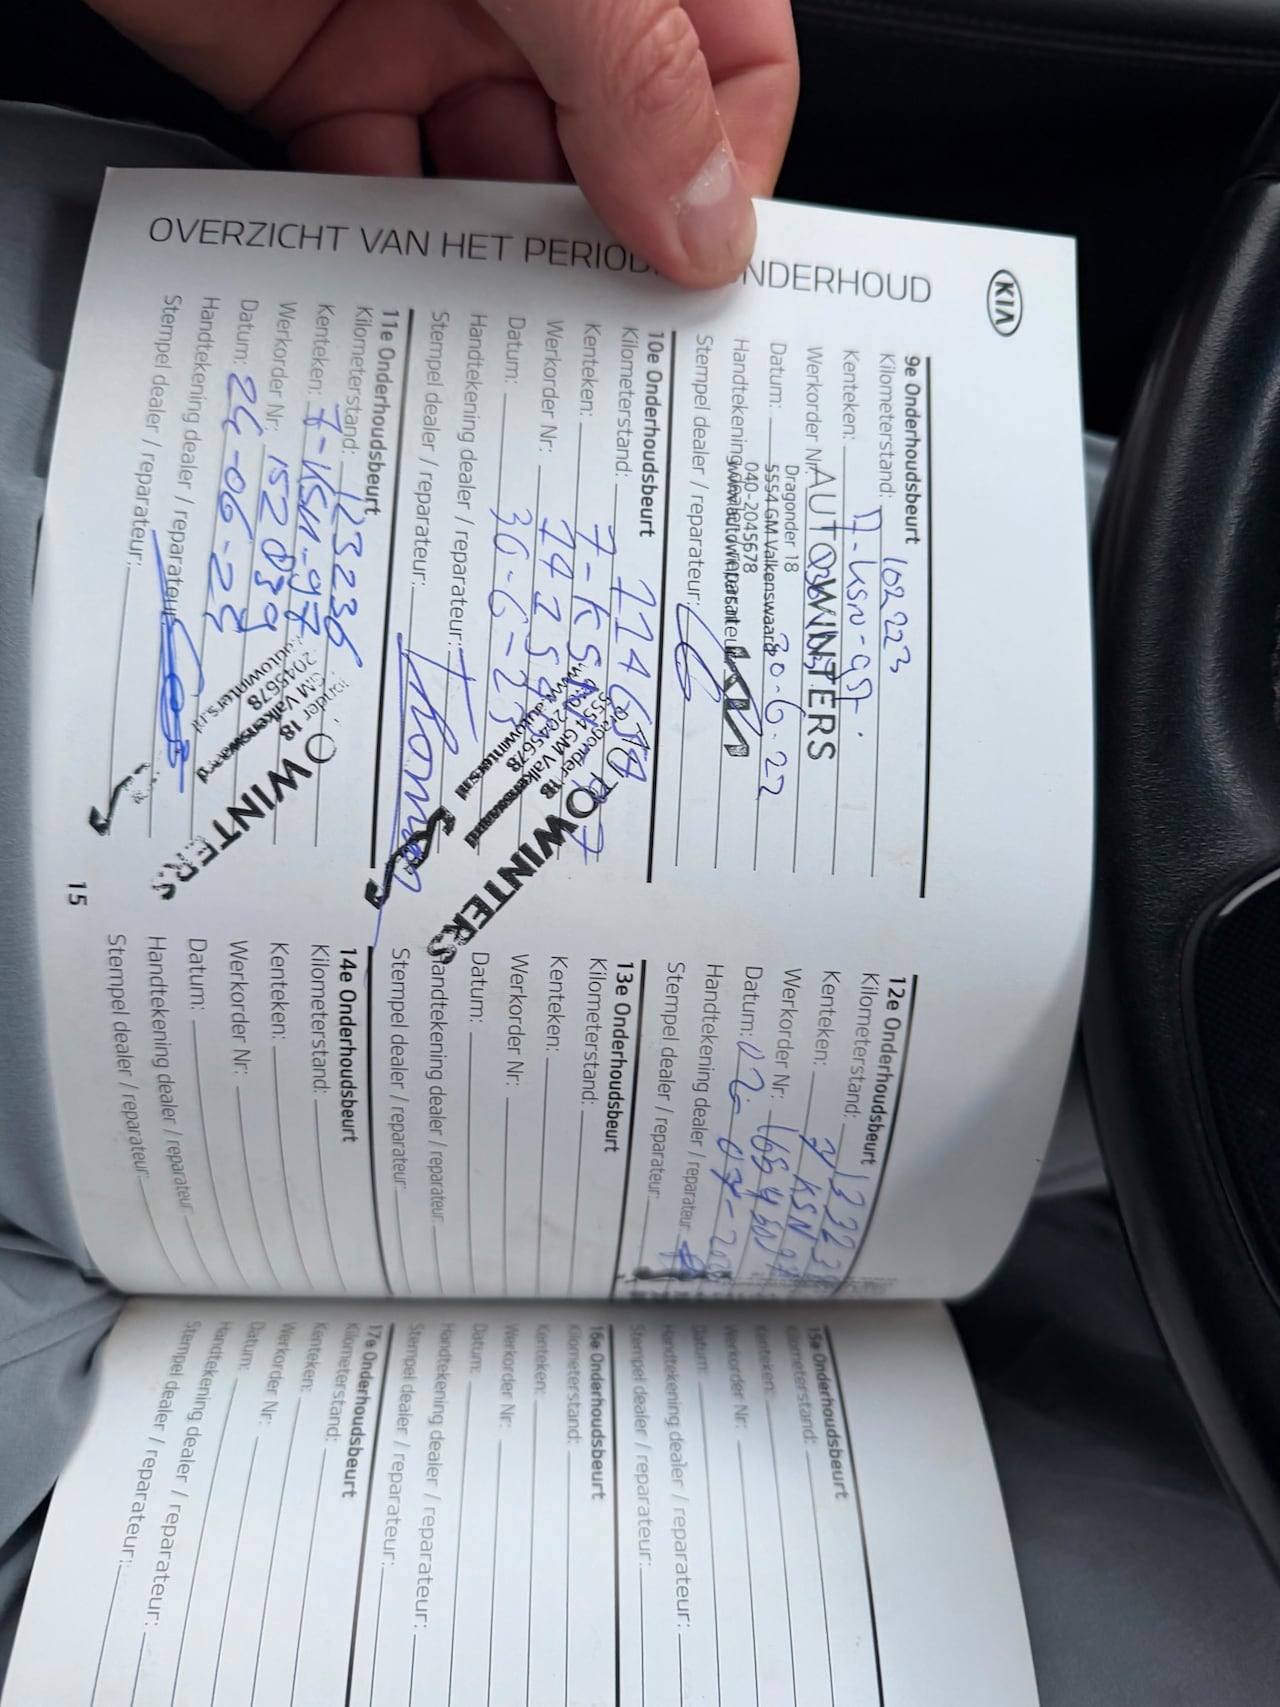 KIA
OVERZICHT VAN HET PERIOD NDERHOUD
9e Onderhoudsbeurt
Kilometerstand: 102223
Kenteken: 7-KSN-97
Werkorder Nr:
AUTOWINTERS
Dragonder 18
5554 GM Valkenswaard
040-2045678
Datum: 30-6-22
Handtekening
Stempel dealer / reparateur:
10e Onderhoudsbeurt
Kilometerstand:
Kenteken: 7-KSN-97
Werkorder Nr:
Datum: 30-6-23
Handtekening dealer / reparateur:
Stempel dealer / reparateur:
OWINTERS
Dragonder 18
5554 GM Valkenswaard
2045678
www.autowinters.nl
11e Onderhoudsbeurt
Kilometerstand: 123236
Kenteken: 7-KSN-97
Werkorder Nr: 152839
Datum: 24-06-24
Handtekening dealer / reparateur:
Stempel dealer / reparateur:
OWINTERS
18
GM Valkenswaard
2045678
autowinters.nl
12e Onderhoudsbeurt
Kilometerstand:
Kenteken: 7 KSN 97
Werkorder Nr:
Datum: 02-07-
Handtekening dealer / reparateur
Stempel dealer / reparateur:
13e Onderhoudsbeurt
Kilometerstand:
Kenteken:
Werkorder Nr:
Datum:
Handtekening dealer / reparateur:
Stempel dealer / reparateur:
14e Onderhoudsbeurt
Kilometerstand:
Kenteken:
Werkorder Nr:
Datum:
Handtekening dealer / reparateur:
Stempel dealer / reparateur:
15
15e Onderhoudsbeurt
Kilometerstand:
Kenteken:
Werkorder Nr:
Datum:
Handtekening dealer / reparateur:
Stempel dealer / reparateur:
16e Onderhoudsbeurt
Kilometerstand:
Kenteken:
Werkorder Nr:
Datum:
Handtekening dealer / reparateur:
Stempel dealer / reparateur:
17e Onderhoudsbeurt
Kilometerstand:
Kenteken:
Werkorder Nr:
Datum:
Handtekening dealer / reparateur:
Stempel dealer / reparateur: